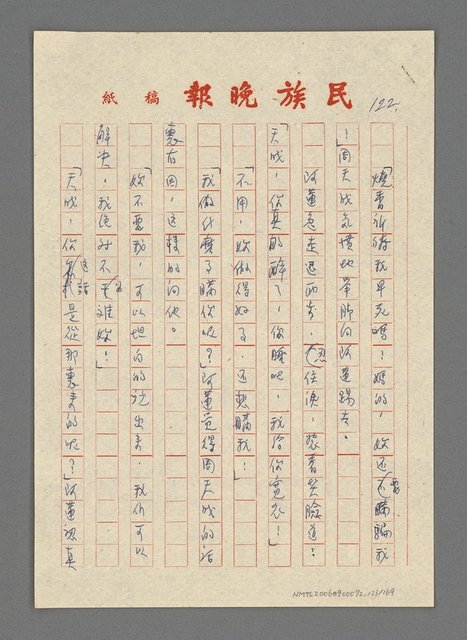 民族晚報 稿紙
122
「燒香祈禱我早死嗎！媽的，妳還要瞞騙我
！」周天成氣憤地舉脚向阿蓮踢去。
阿蓮急走退兩步，忍住淚，裝著笑臉道：
「天成，你真的醉了，你睡吧，我給你寬衣！」
「不用，妳做得好了，還想瞞我！」
「我做什麼了瞞你呢？」阿蓮覺得周天成的話
裏有因，這樣的問他。
「妳不要我，可以坦白的說出來，我們可以
解决，我絕对不為难妳！」
「天成，你這話是從那裏来的呢？」阿蓮認真
NMTL20060900072_123/169